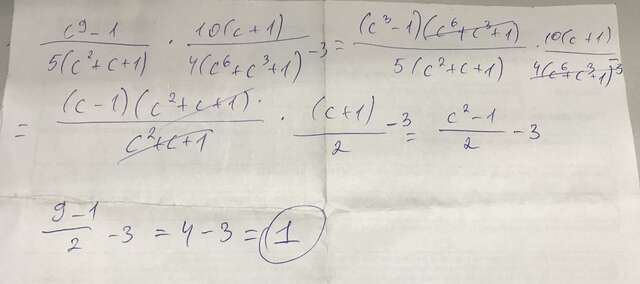 \frac{c^9-1}{5(c^2+c+1)} \cdot \frac{10(c+1)}{4(c^6+c^3+1)} -3 = \frac{(c^3-1)(c^6+c^3+1)}{5(c^2+c+1)} \cdot \frac{10(c+1)}{4(c^6+c^3+1)} -3
= \frac{(c-1)(c^2+c+1) \cdot}{c^2+c+1} \cdot \frac{(c+1)}{2} -3 = \frac{c^2-1}{2} -3
\frac{9-1}{2} -3 = 4-3 = 1